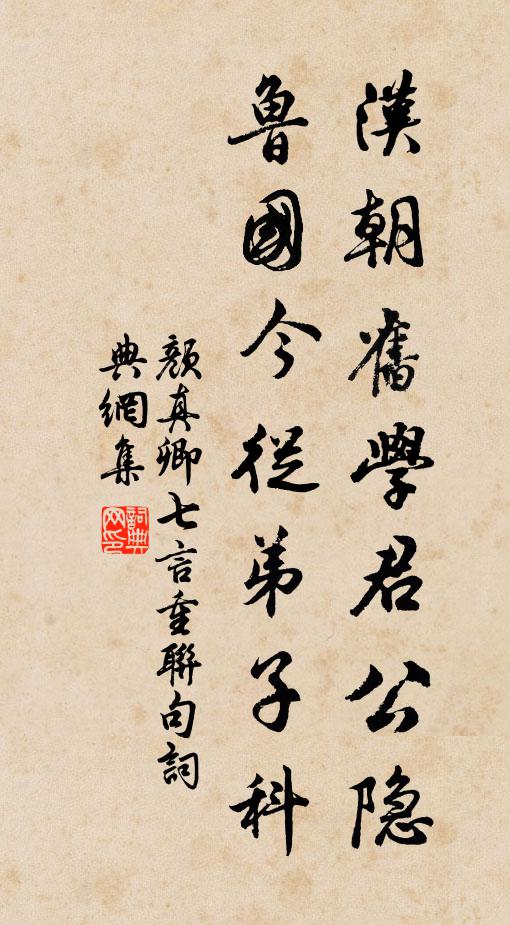 漢朝舊學君公隐
魯國今從弟子科
顔真卿七言重聯句詞
典網集
詞典
网印